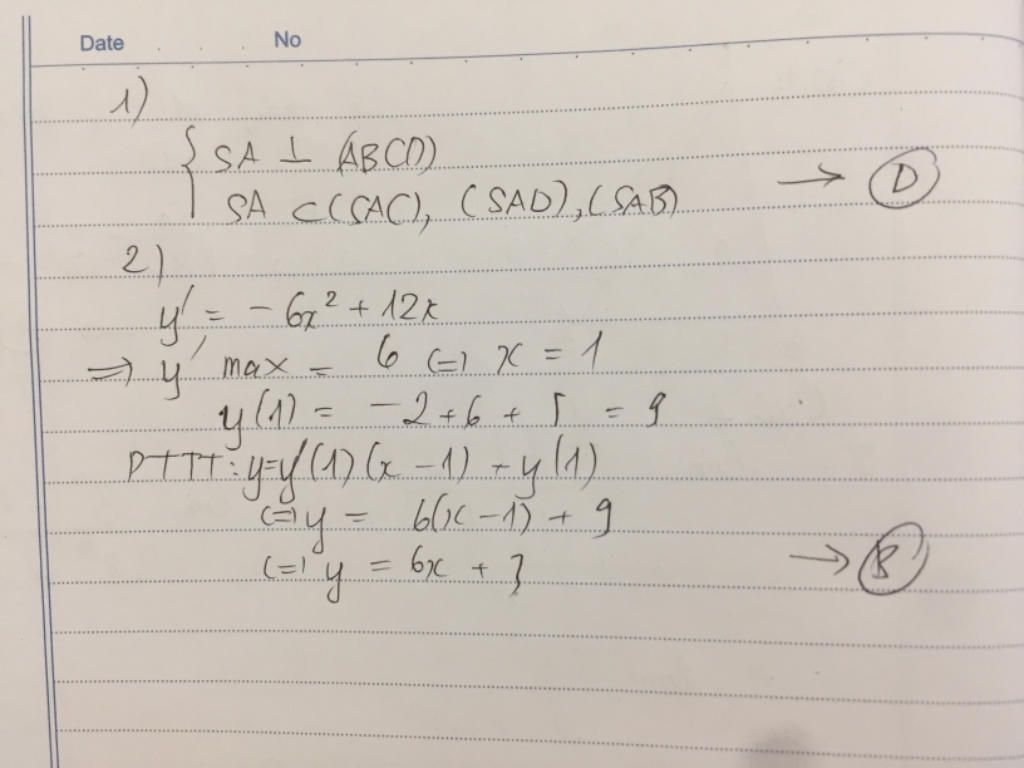 Date No
1)
{ SA ⊥ (ABCD)
SA ⊂ (SAC), (SAD), (SAB) → D
2)
y' = -6x² + 12x
=> y' max = 6 (=) x = 1
y(1) = -2 + 6 + 5 = 9
PTTT: y=y'(1)(x - 1) + y(1)
(=) y = 6(x - 1) + 9
(=) y = 6x + 3 → B